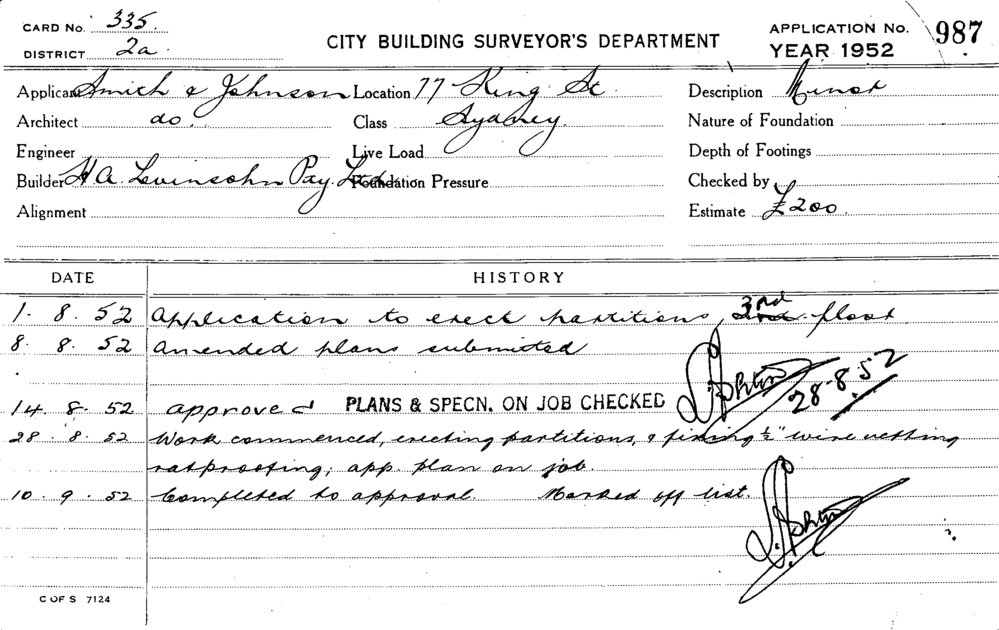 CARD No. 335.
DISTRICT 2a.
CITY BUILDING SURVEYOR'S DEPARTMENT
APPLICATION No. 987
YEAR 1952
Applicant Smith & Johnson Location 77 King St. Description Minor
Architect do. Class Sydney. Nature of Foundation
Engineer Live Load Depth of Footings
Builder H A. Levinsohn Pty. Ltd. Foundation Pressure Checked by
Alignment Estimate £200.
DATE HISTORY
1. 8. 52 Application to erect partitions, 3rd floor
8. 8. 52 Amended plans submitted
14. 8. 52 approved PLANS & SPECN. ON JOB CHECKED 28.8.52
28. 8. 52 Work commenced, erecting partitions, & fixing ½" wire netting
ratproofing; app. plan on job.
10. 9. 52 Completed to approval. Marked off list.
C OF S 7124